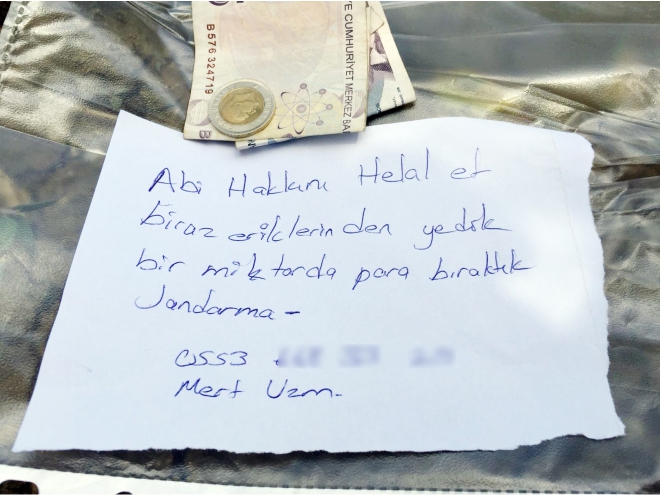 B576324719
YE CUMHURİYET MERKEZ BA
5
Abi Hakkını Helal et
biraz eriklerinden yedik
bir miktarda para bıraktık
Jandarma -
0553
Mert Uzm.